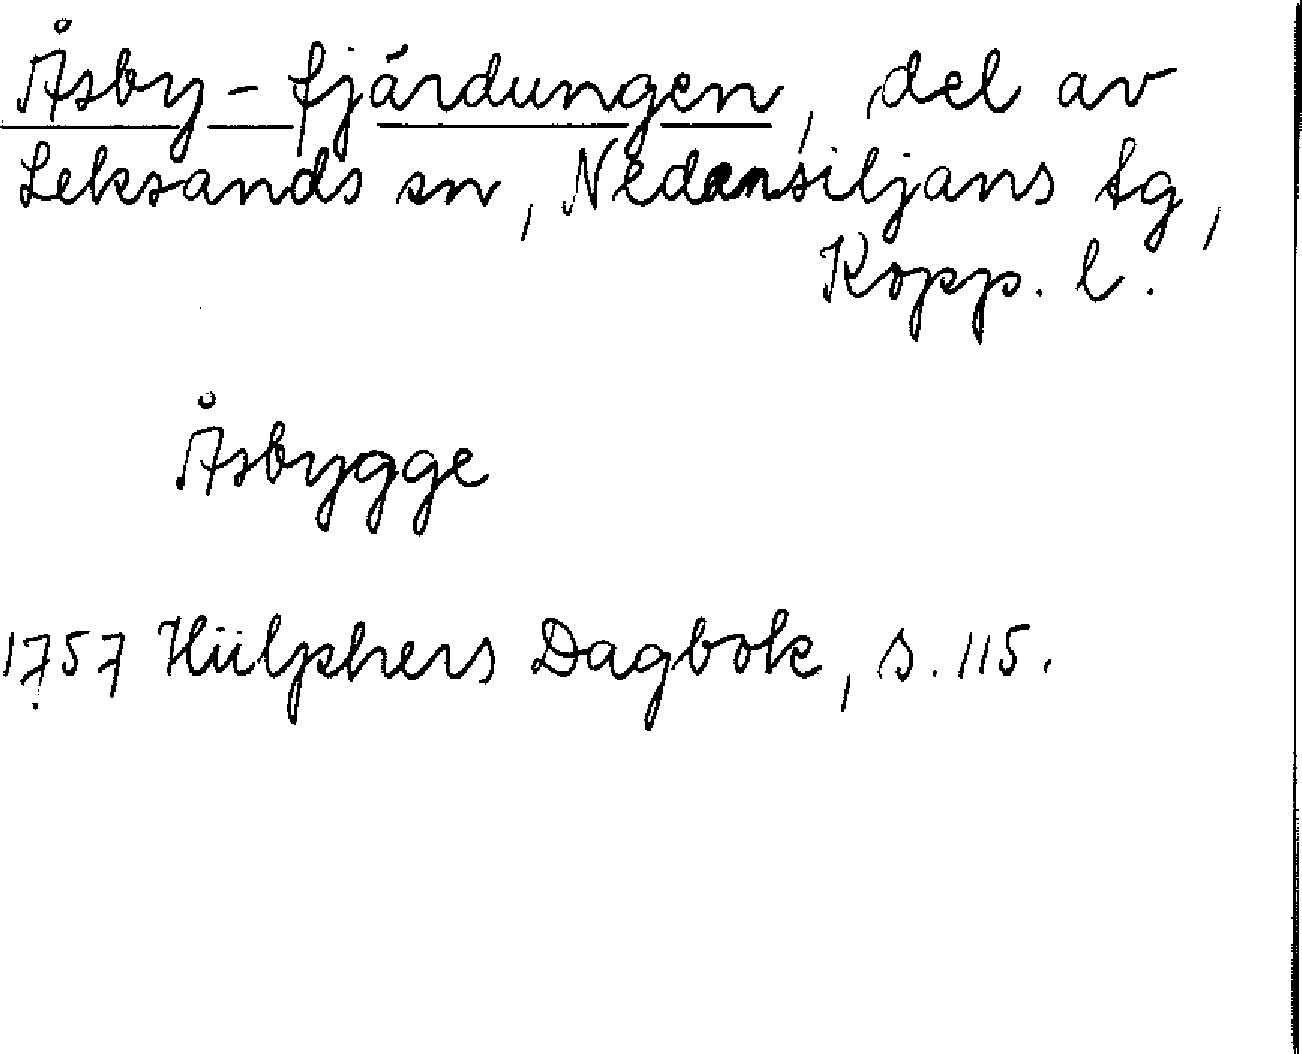 Åsby-fjärdungen, del av
Leksands sn, Nedansiljans tg,
Kopp. l.
Åsbygge
1757 Hülphers Dagbok, s. 115.